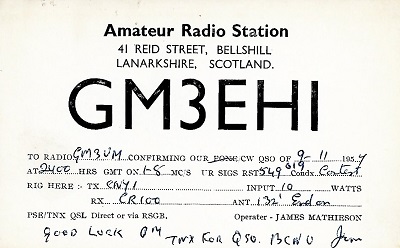 Amateur Radio Station
41 REID STREET, BELLSHILL
LANARKSHIRE, SCOTLAND.
GM3EHI
TO RADIO GM3UM CONFIRMING OUR FONE CW QSO OF 9-11 1957
AT 2400 HRS GMT ON 1-8 MC/S UR SIGS RST 549 019 Condx. Contest
RIG HERE :- TX CNY1 INPUT 10 WATTS
RX CR100 ANT 132'
PSE/TNX QSL Direct or via RSGB. Operator - JAMES MATHIESON
GOOD LUCK OM TNX FOR QSO. BCNU Jim